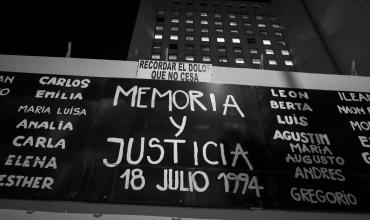 RECORDAR EL DOLOR
QUE NO CESA
CARLOS
EMILIA
MARIA LUISA
ANALIA
CARLA
ELENA
ESTHER
MEMORIA
Y
JUSTICIA
18 JULIO 1994
LEON
BERTA
LUIS
AGUSTIN
MARIA
AUGUSTO
ANDRES
GREGORIO
ILEANA